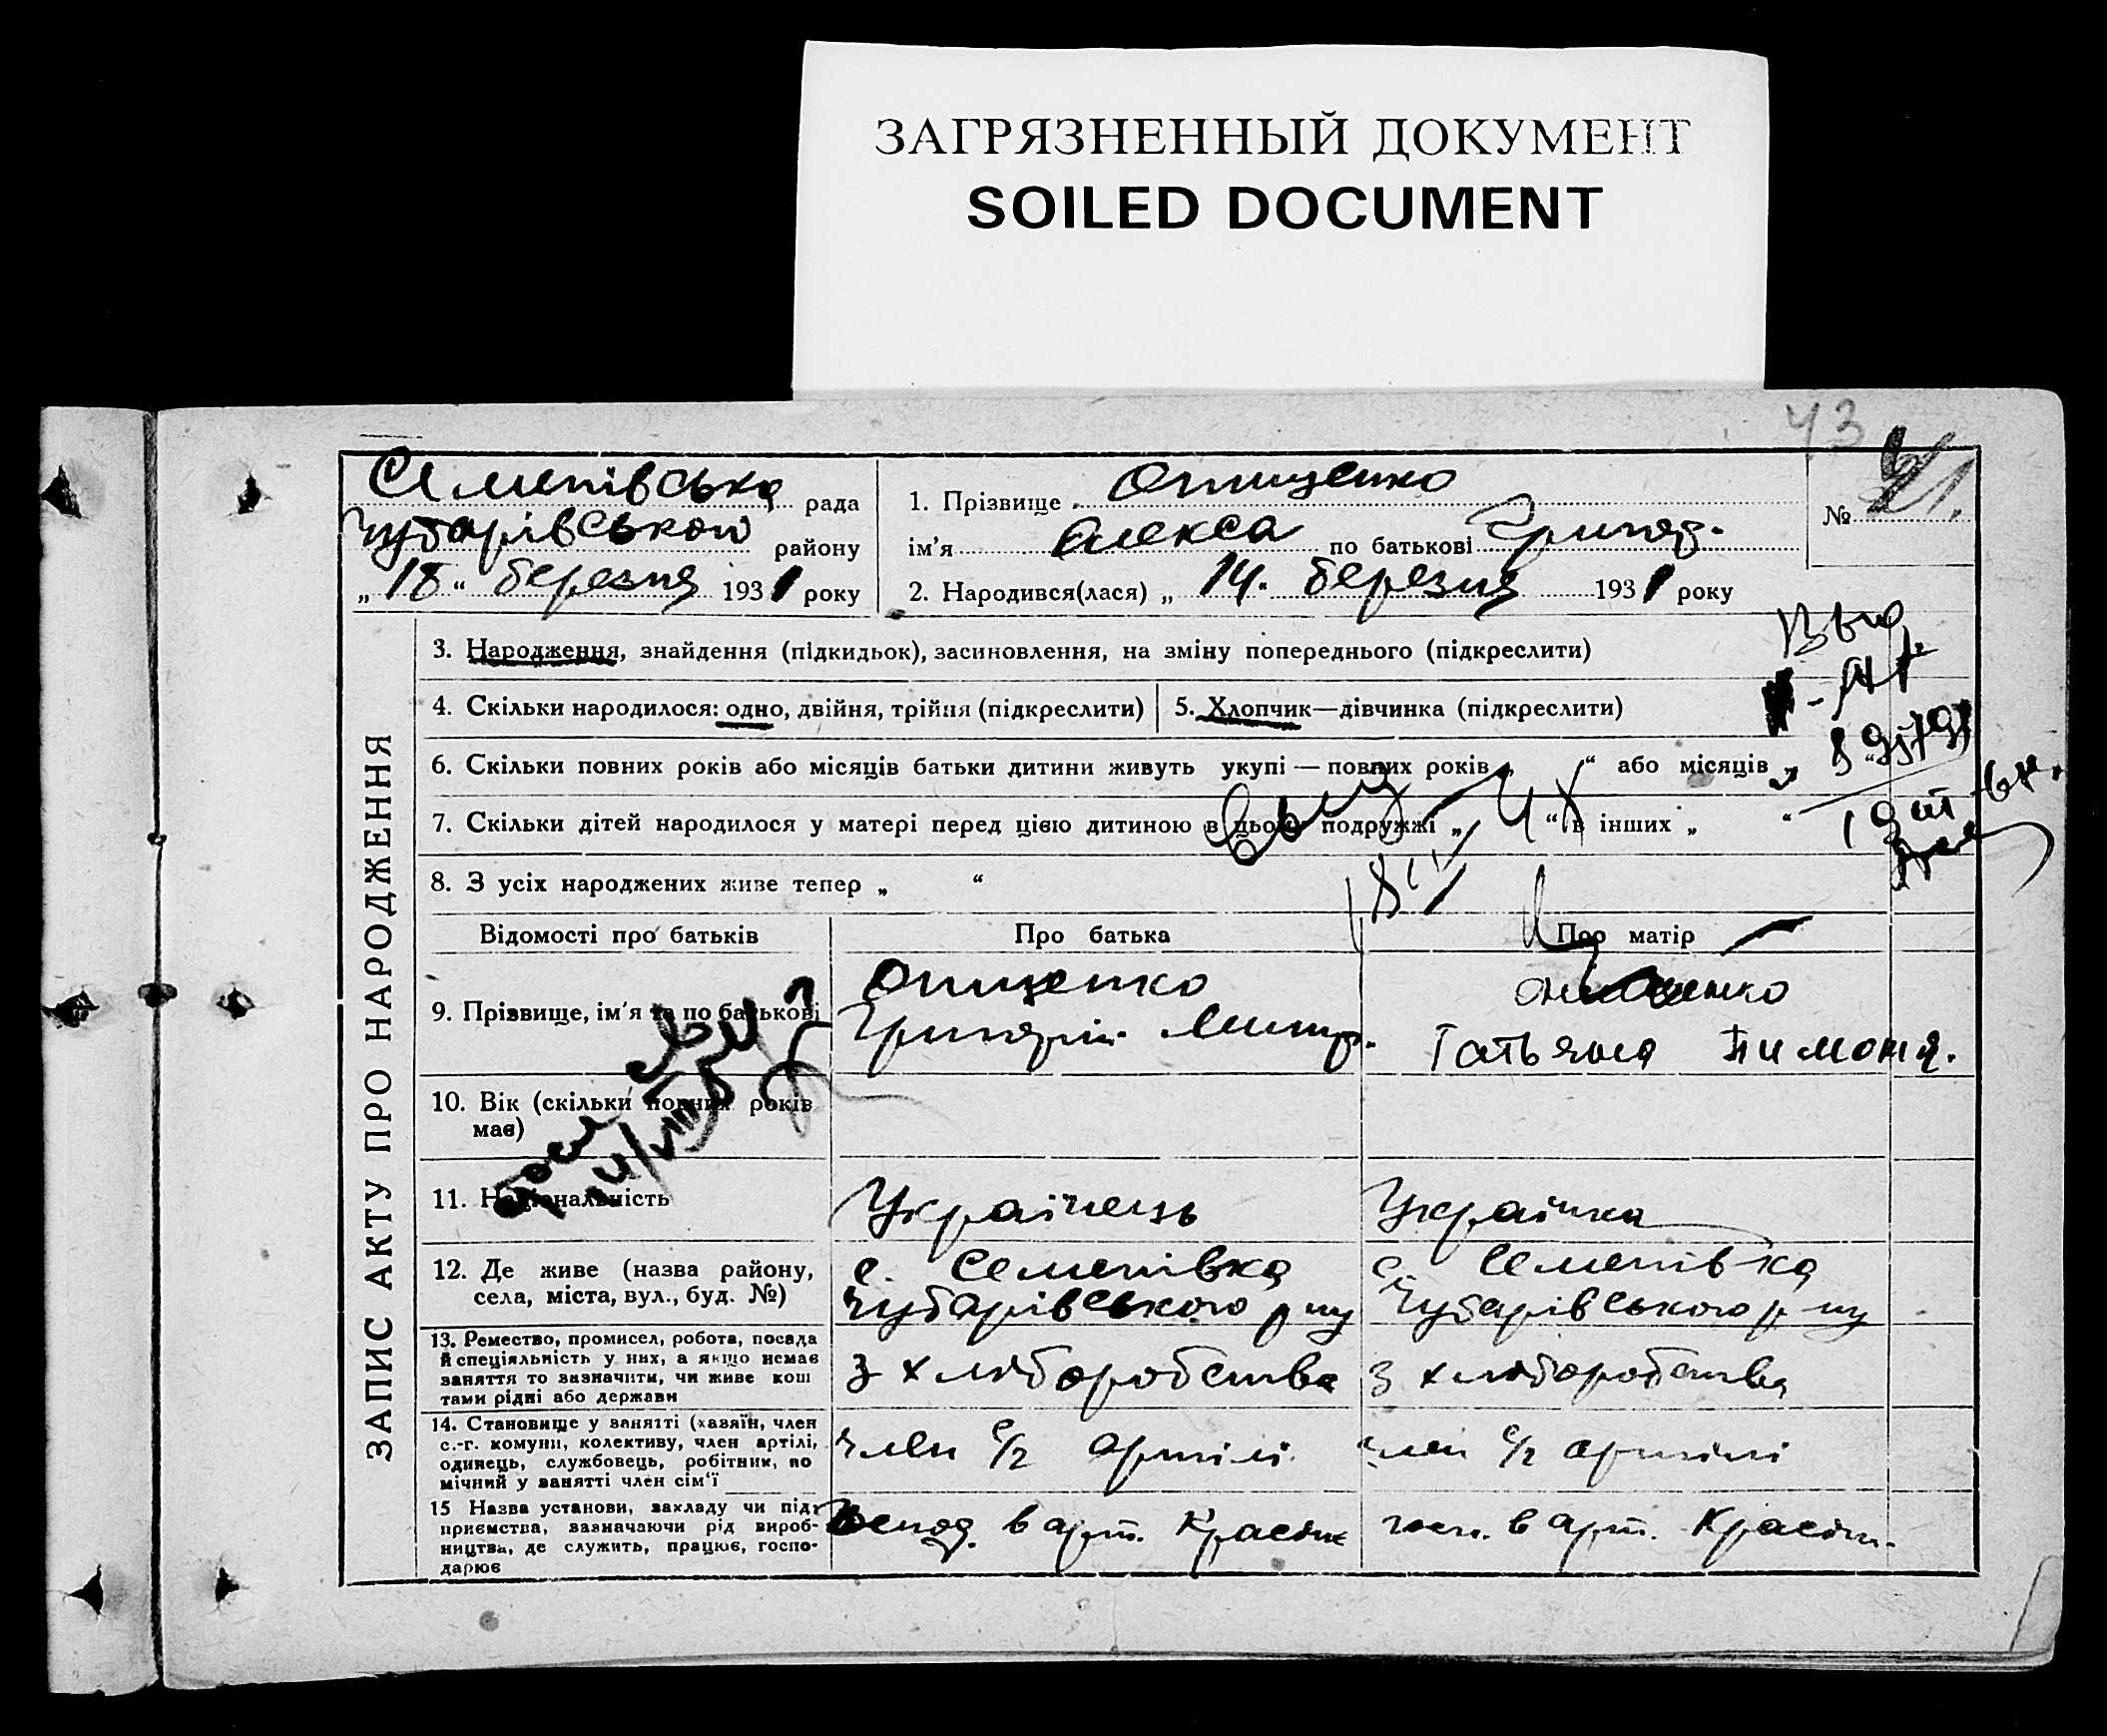 ЗАГРЯЗНЕННЫЙ ДОКУМЕНТ
SOILED DOCUMENT
43
Семенівська рада
Чубарівського району
„ 18 “ березня 1931 року
1. Прізвище Онищенко
ім’я Олекса по батькові Григор.
2. Народився(лася) „ 14. березня 1931 року
№ 41.
ЗАПИС АКТУ ПРО НАРОДЖЕННЯ
3. Народження, знайдення (підкидьок), засиновлення, на зміну попереднього (підкреслити)
4. Скільки народилося: одно, двійня, трійня (підкреслити)
5. Хлопчик—дівчинка (підкреслити)
6. Скільки повних років або місяців батьки дитини живуть укупі — повних років „ “ або місяців „ “
7. Скільки дітей народилося у матері перед цією дитиною в цьому подружжі „ 4 “ в інших „ “
8. З усіх народжених живе тепер „ “
Відомості про батьків
Про батька
Про матір
9. Прізвище, ім’я та по батькові
Онищенко
Григорій Митр.
Онищенко
Татьяна Пимоня.
10. Вік (скільки повних років
має)
11. Національність
Українець
Українка
12. Де живе (назва району,
села, міста, вул., буд. №)
с. Семенівка
Чубарівського р-ну
с. Семенівка
Чубарівського р-ну
13. Ремество, промисел, робота, посада
й спеціяльність у них, а якщо немає
заняття то зазначити, чи живе кош
тами рідні або держави
з хліборобства
з хліборобства
14. Становище у занятті (хазяїн, член
с.-г. комуни, колективу, член артілі,
одинець, службовець, робітник, по
мічний у занятті член сім‘ї
член с/г артілі
член с/г артілі
15 Назва установи, закладу чи під-
приємства, зазначаючи рід вироб-
ництва, де служить, працює, госпо-
дарює
господ. в арт.
госп. в арт.